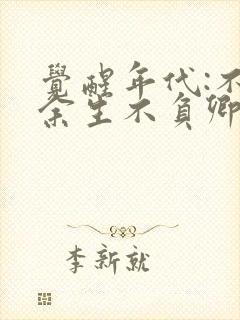 覺醒年代:不
余生不負卿
李新就